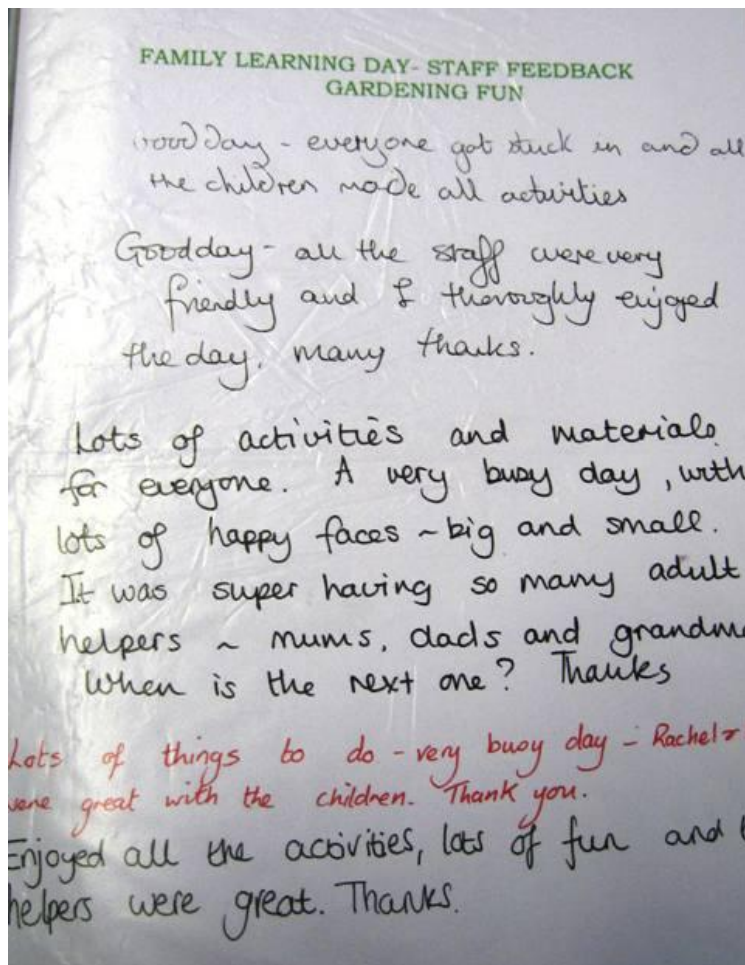 FAMILY LEARNING DAY- STAFF FEEDBACK
GARDENING FUN
Good Day - everyone got stuck in and all
the children made all activities
Good day - all the staff were very
friendly and I thoroughly enjoyed
the day, many thanks.
Lots of activities and materials
for everyone. A very busy day, with
lots of happy faces ~ big and small.
It was super having so many adult
helpers ~ mums, dads and grandm
When is the next one? Thanks
Lots of things to do - very busy day - Rachel
were great with the children. Thank you.
Enjoyed all the activities, lots of fun and
helpers were great. Thanks.